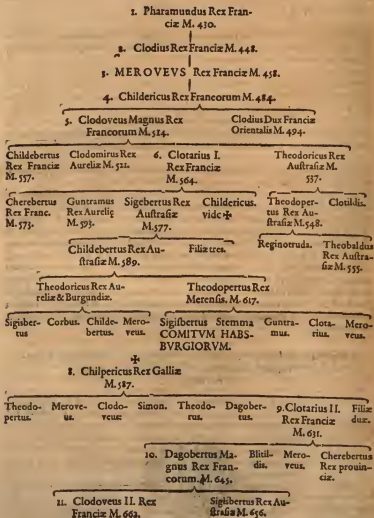 1. Pharamundus Rex Fran-
ciæ M. 430.
2. Clodius Rex Franciæ M. 448.
3. MEROVEVS Rex Franciæ M. 458.
4. Childericus Rex Francorum M. 484.
5. Clodoveus Magnus Rex
Francorum M. 514.
Clodius Dux Franciæ
Orientalis M. 494.
Childebertus
Rex Franciæ
M. 557.
Clodomirus Rex
Aureliæ M. 521.
6. Clotarius I.
Rex Franciæ
M. 564.
Theodoricus Rex
Austrasiæ M.
537.
Cherebertus
Rex Franc.
M. 573.
Guntramus
Rex Aurelię
M. 593.
Sigebertus Rex
Austrasiæ
M. 577.
Childericus.
vide ✠
Theodoper-
tus Rex Au-
strasiæ M. 548.
Clotildis.
Childebertus Rex Au-
strasiæ M. 589.
Filiæ tres.
Reginotruda.
Theobaldus
Rex Austra-
siæ M. 555.
Theodoricus Rex Au-
reliæ & Burgundiæ.
Theodopertus Rex
Metensis. M. 617.
Sigisber-
tus
Corbus.
Childe-
bertus.
Mero-
veus.
Sigisbertus Stemma
COMITVM HABS-
BVRGIORVM.
Guntra-
mus.
Clota-
rius.
Mero-
veus.
✠
8. Chilpericus Rex Galliæ
M. 587.
Theodo-
pertus.
Merove-
us.
Clodo-
veus:
Simon.
Theodo-
rus.
Dagober-
tus.
9. Clotarius II.
Rex Franciæ
M. 631.
Filiæ
duæ.
10. Dagobertus Ma-
gnus Rex Fran-
corum. M. 645.
Blitil-
dis.
Mero-
veus.
Cherebertus
Rex prouin-
ciæ.
11. Clodoveus II. Rex
Franciæ M. 662.
Sigisbertus Rex Au-
strasiæ M. 656.